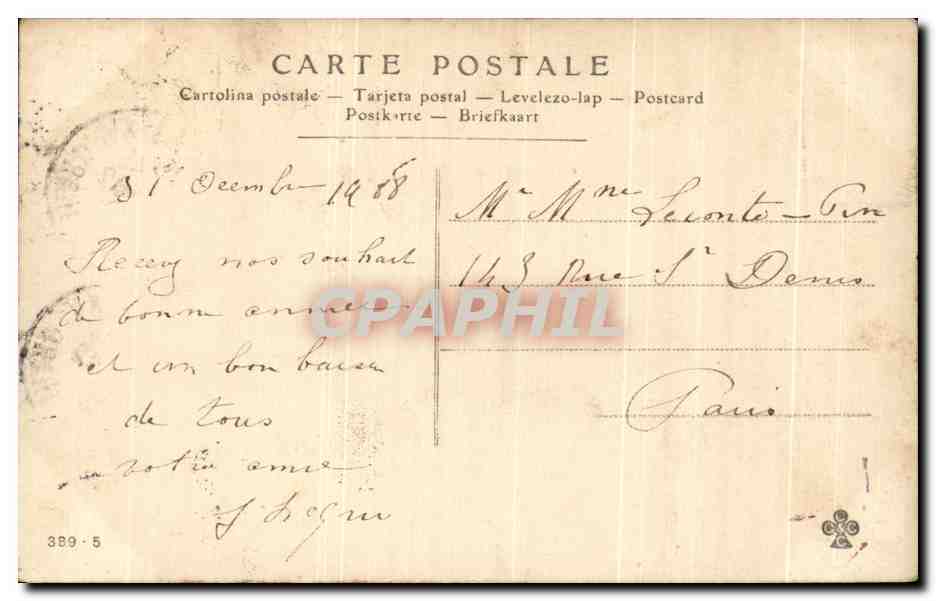 CARTE POSTALE
Cartolina postale — Tarjeta postal — Levelezo-lap — Postcard
Postkarte — Briefkaart
31 Decembre
Recevez nos souhait
de bonne année
et un bon baiser
de tous
votre amie
Mr Mme Leconte
143 Rue St Denis
Paris
CPAPHIL
389 - 5
C C C C